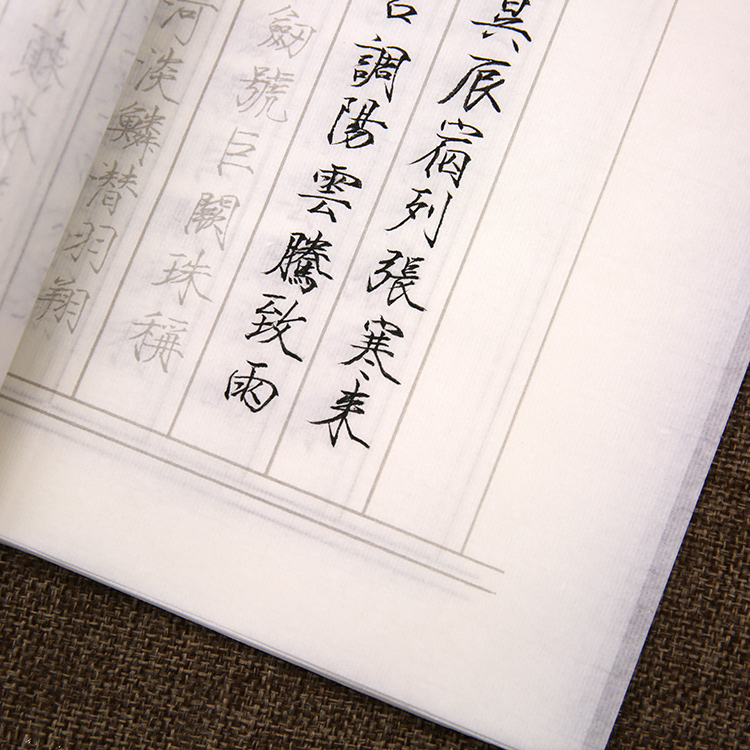 昃辰宿列張寒来
調陽雲騰致雨
劍號巨闕珠稱
河淡鱗潜羽翔